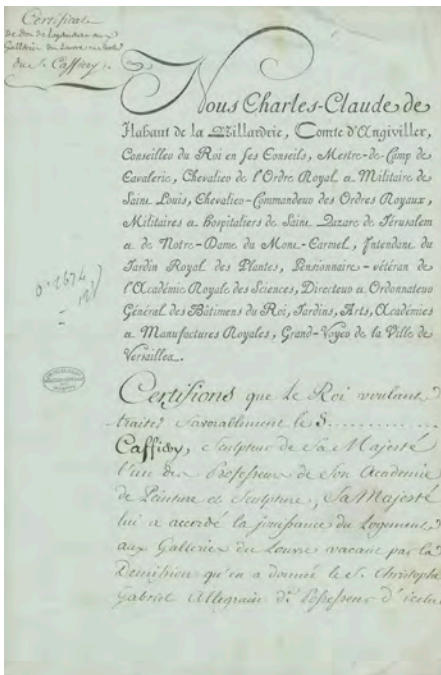 Certificat
de don de Logement aux
Galleries du Louvre en faveur
du S. Caffiery.
Nous Charles-Claude de
Flahaut de la Billarderie, Comte d'Angiviller,
Conseiller du Roi en ses Conseils, Mestre-de-Camp de
Cavalerie, Chevalier de l'Ordre Royal & Militaire de
Saint Louis, Chevalier-Commandeur des Ordres Royaux,
Militaires & hospitaliers de Saint Lazare de Jérusalem
& de Notre-Dame du Mont-Carmel, Intendant du
Jardin Royal des Plantes, Pensionnaire-vétéran de
l'Académie Royale des Sciences, Directeur & Ordonnateur
Général des Bâtimens du Roi, Jardins, Arts, Académies
& Manufactures Royales, Grand-Voyer de la Ville de
Versailles.
O¹ 1674
Certifions que le Roi voulant
traiter favorablement le S. ..........
Caffiery, Sculpteur de Sa Majesté
l'un des Professeurs de Son Academie
de Peinture et Sculpture, Sa Majesté
lui a accordé la jouissance du Logement
aux Galleries du Louvre vacant par la
Demission qu'en a donnée le S. Christophe
Gabriel Allegrain d.